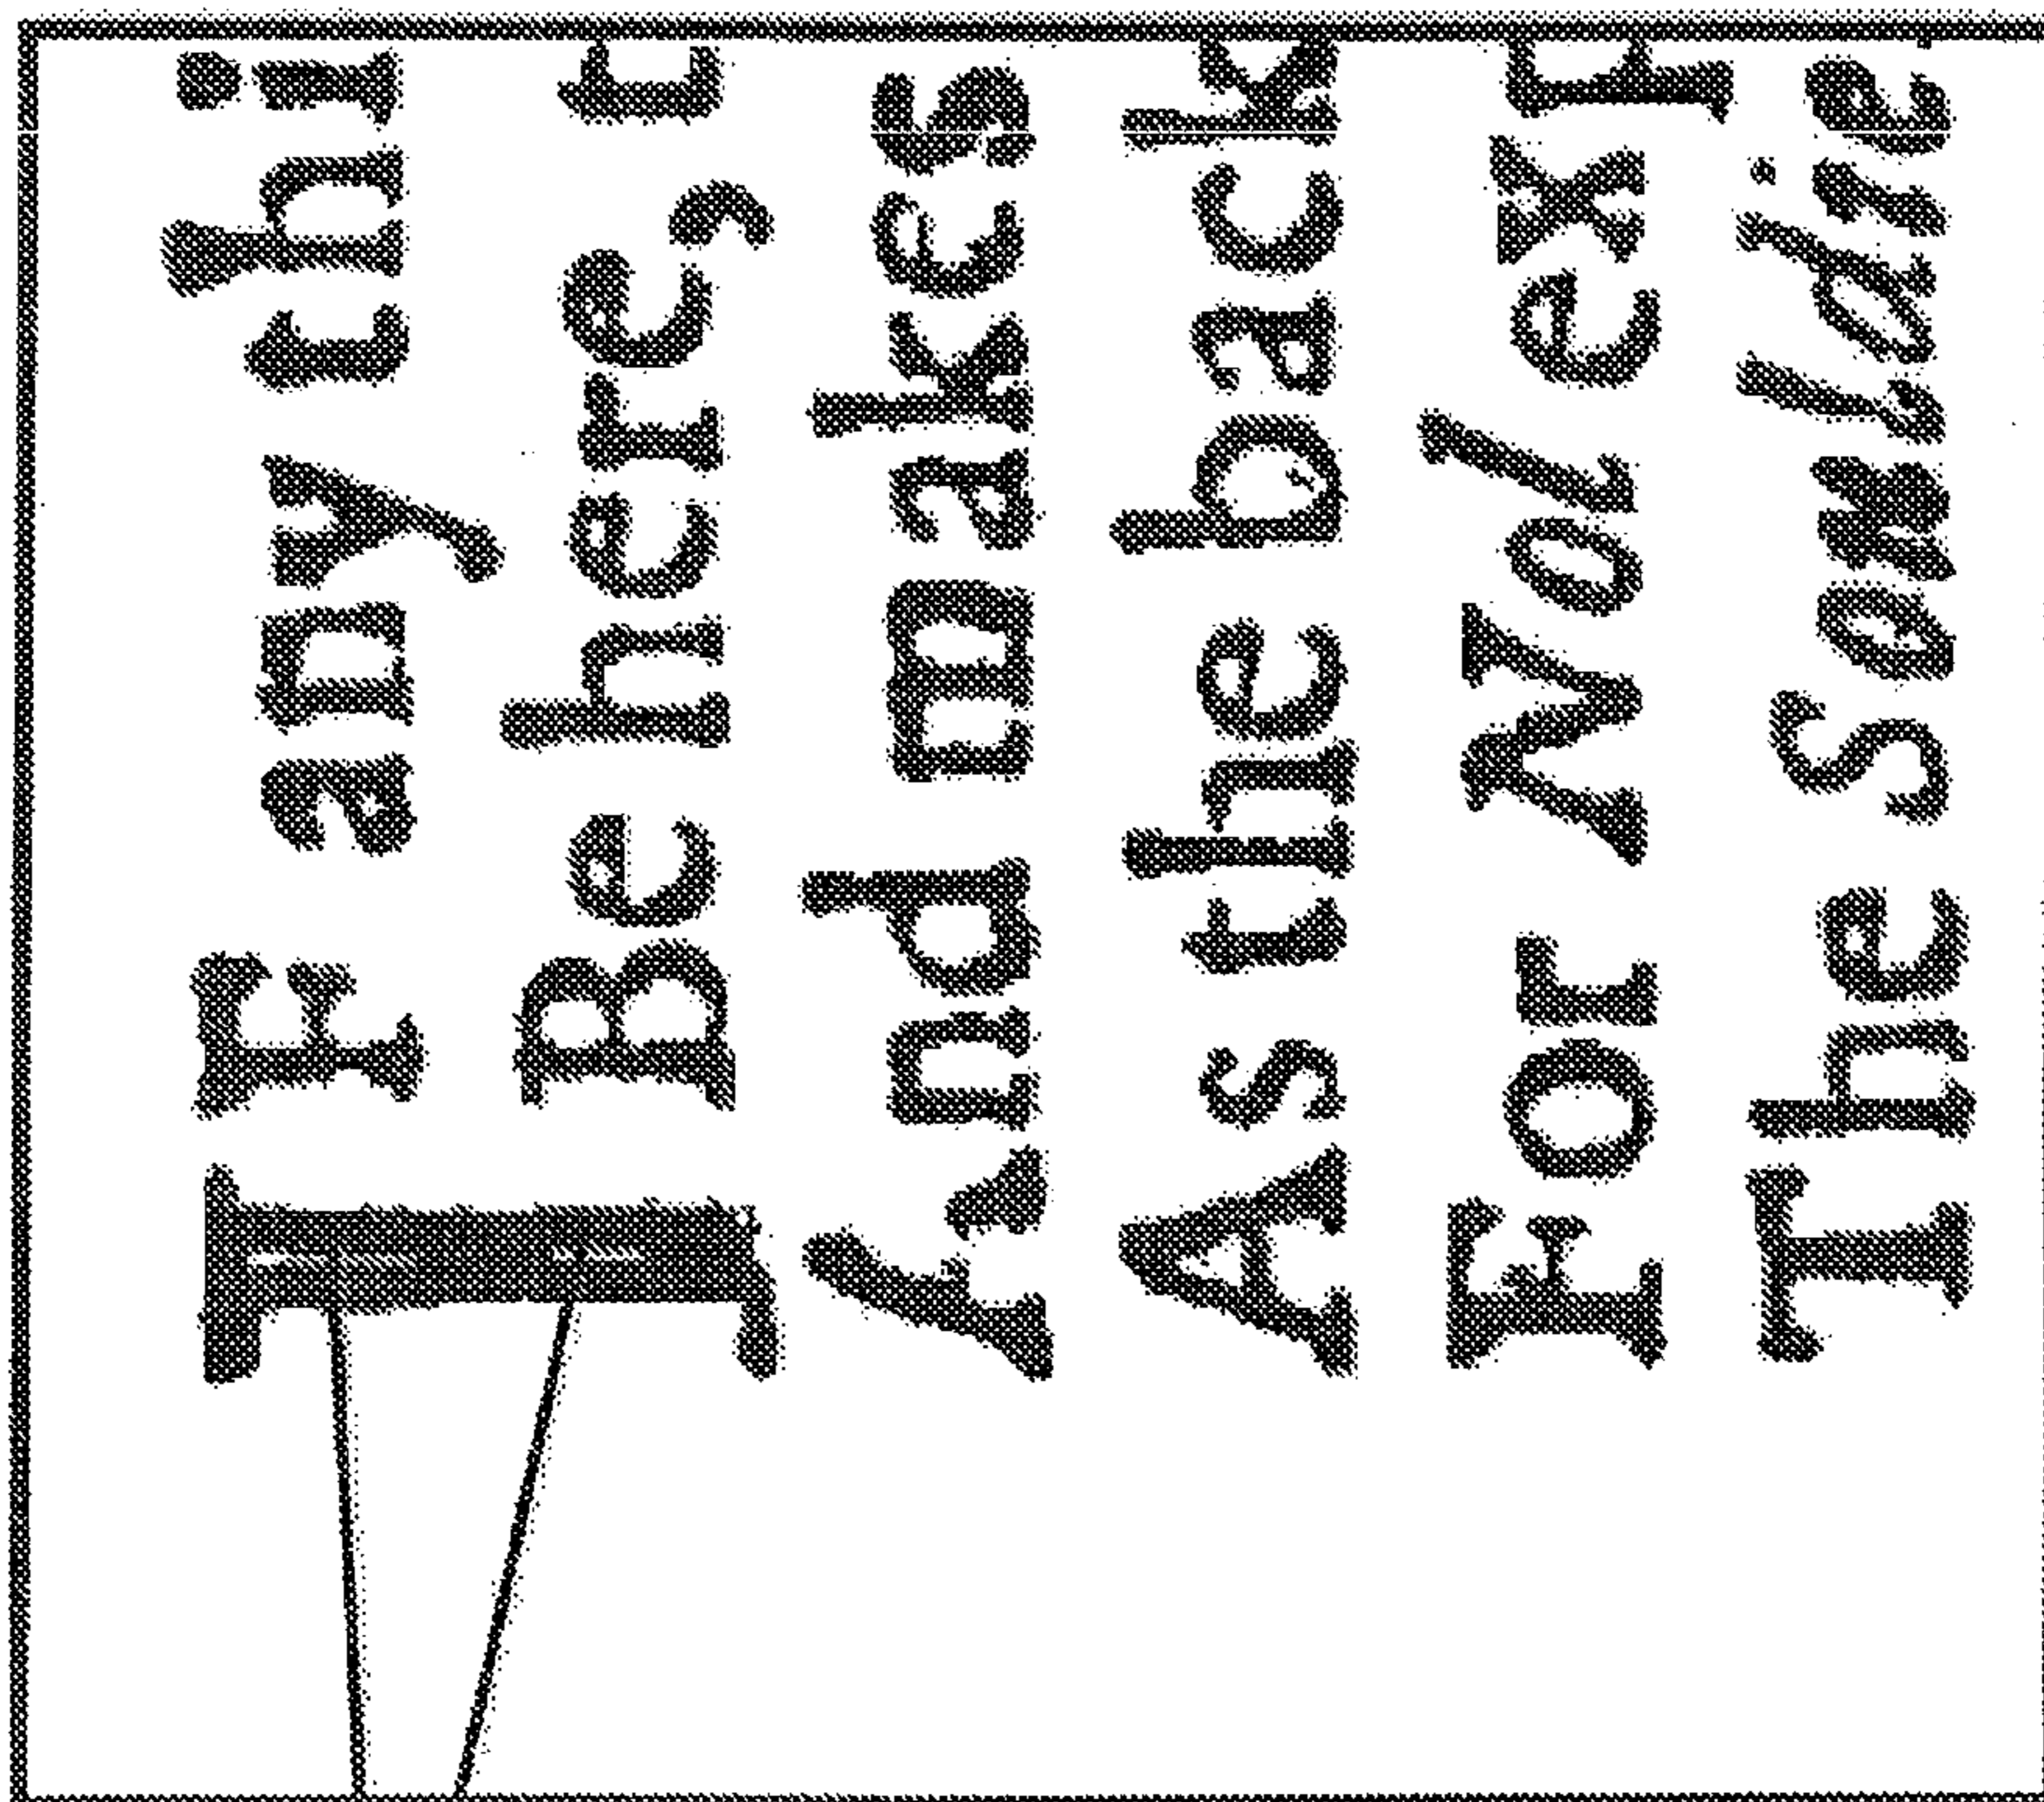 IF any thi
Be here, t
And makes
As the back
For Not exp
The Souldie